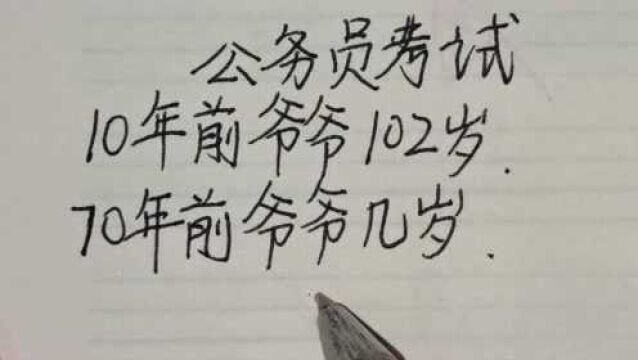 公务员考试
10年前爷爷102岁.
70年前爷爷几岁.